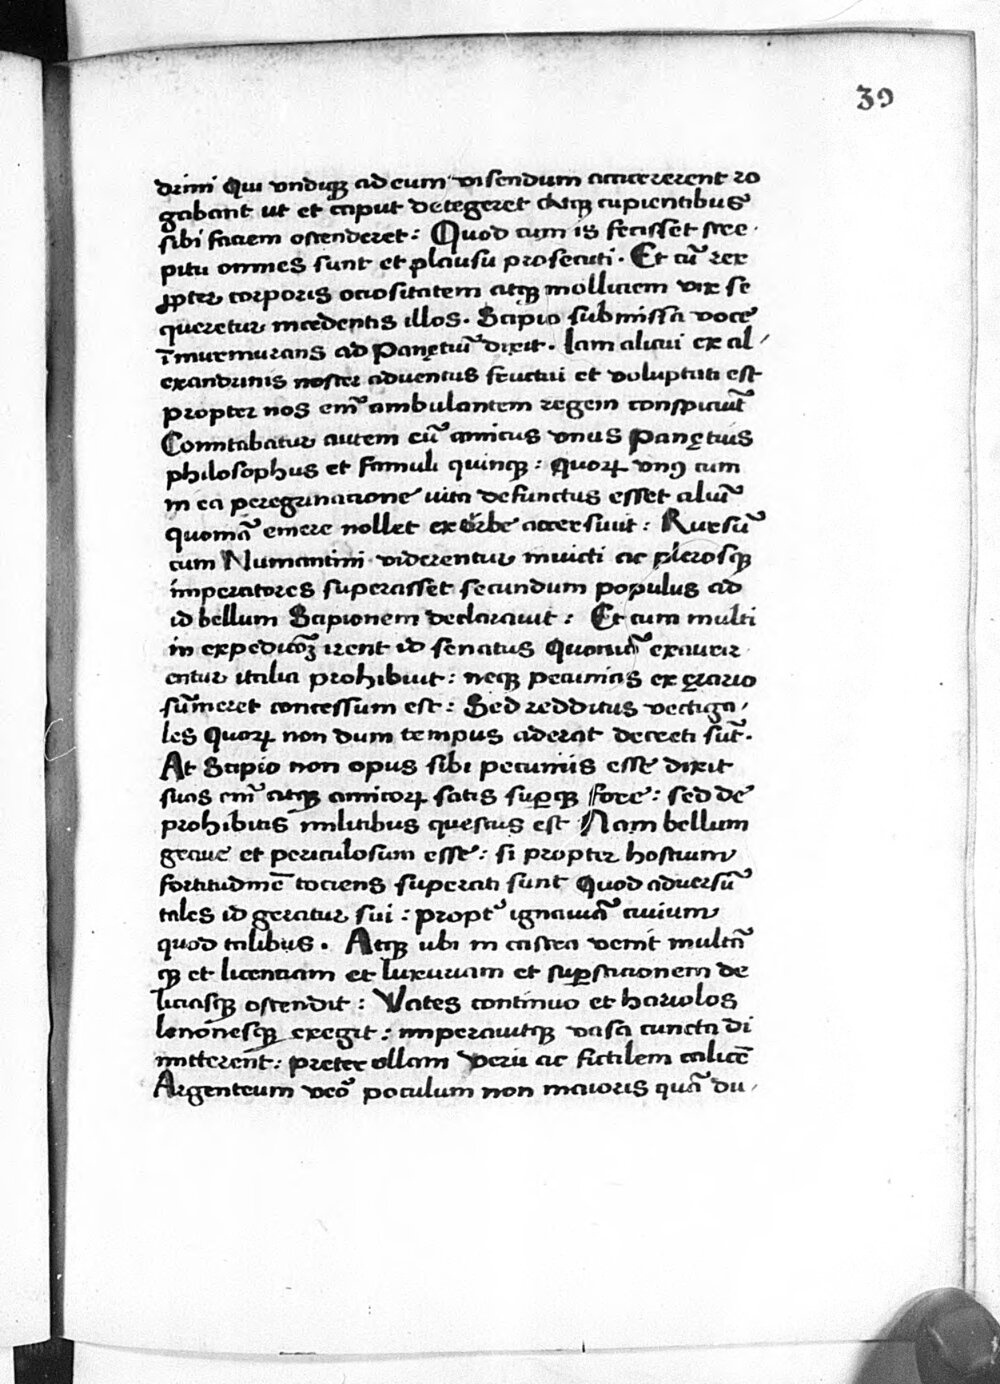 39
drini Qui undiqꝫ ad eum visendum accurrerent ro
gabant ut et caput detegeret Atqꝫ cupientibus
sibi faciem ostenderet: Quod cum is fecisset stre
pitu omnes sunt et plausu prosecuti. Et cū rex
ꝓpter corporis ociositatem atqꝫ molliciem vix se
queretur incedentis illos. Scipio submissa voce
īmurmurans ad Panętiū dixit. Iam alicui ex al
exandrinis noster adventus fructui et voluptati est
propter nos em̄ ambulantem regem conspiciūt
Comitabatur autem cū amicus unus Panętius
philosophus et famuli quinqꝫ: quorꝝ unꝰ cum
in ea peregrinatione vita defunctus esset aliū
quoniā emere nollet ex urbe accersivit: Rursū
cum Numantini viderentur invicti ac plerosqꝫ
imperatores superasset secundum populus ad
id bellum Scipionem declaravit: Et cum multi
in expedicōꝫ irent id senatus Quoniā exaurir
entur italia prohibuit: neqꝫ pecunias ex ęrario
sūmeret concessum est: Sed redditus vectiga
les quorꝝ non dum tempus aderat decreti sūt.
At Scipio non opus sibi pecuniis esse dixit
suas em̄ atqꝫ amicorꝝ satis suꝑqꝫ fore: sed de
prohibitis militibus questus est Nam bellum
grave et periculosum esse: si propter hostium
fortitudinē tociens superati sunt Quod adversū
tales id geratur sui: propt᾽ ignaviā civium
quod talibus. Atqꝫ ubi in castra venit multā
qꝫ et licentiam et luxuriam et suꝑsticionem de
liciasqꝫ ostendit: Vates continuo et hariolos
lenonesqꝫ exegit: imperavitqꝫ vasa cuncta di
mitterent: preter ollam veru ac fictilem calicē
Argenteum vēo poculum non maioris quā du